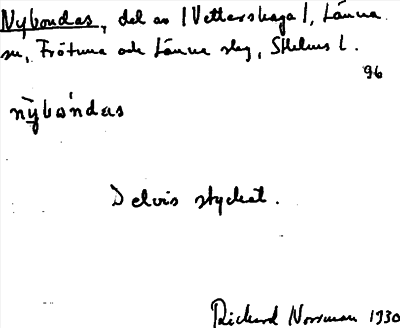 Nybondas, del av [Vettershaga], Länna
sn, Frötuna och Länna slg, Sthlms l.
96
nȳbòndas
Delvis styckat.
Richard Norrman 1930